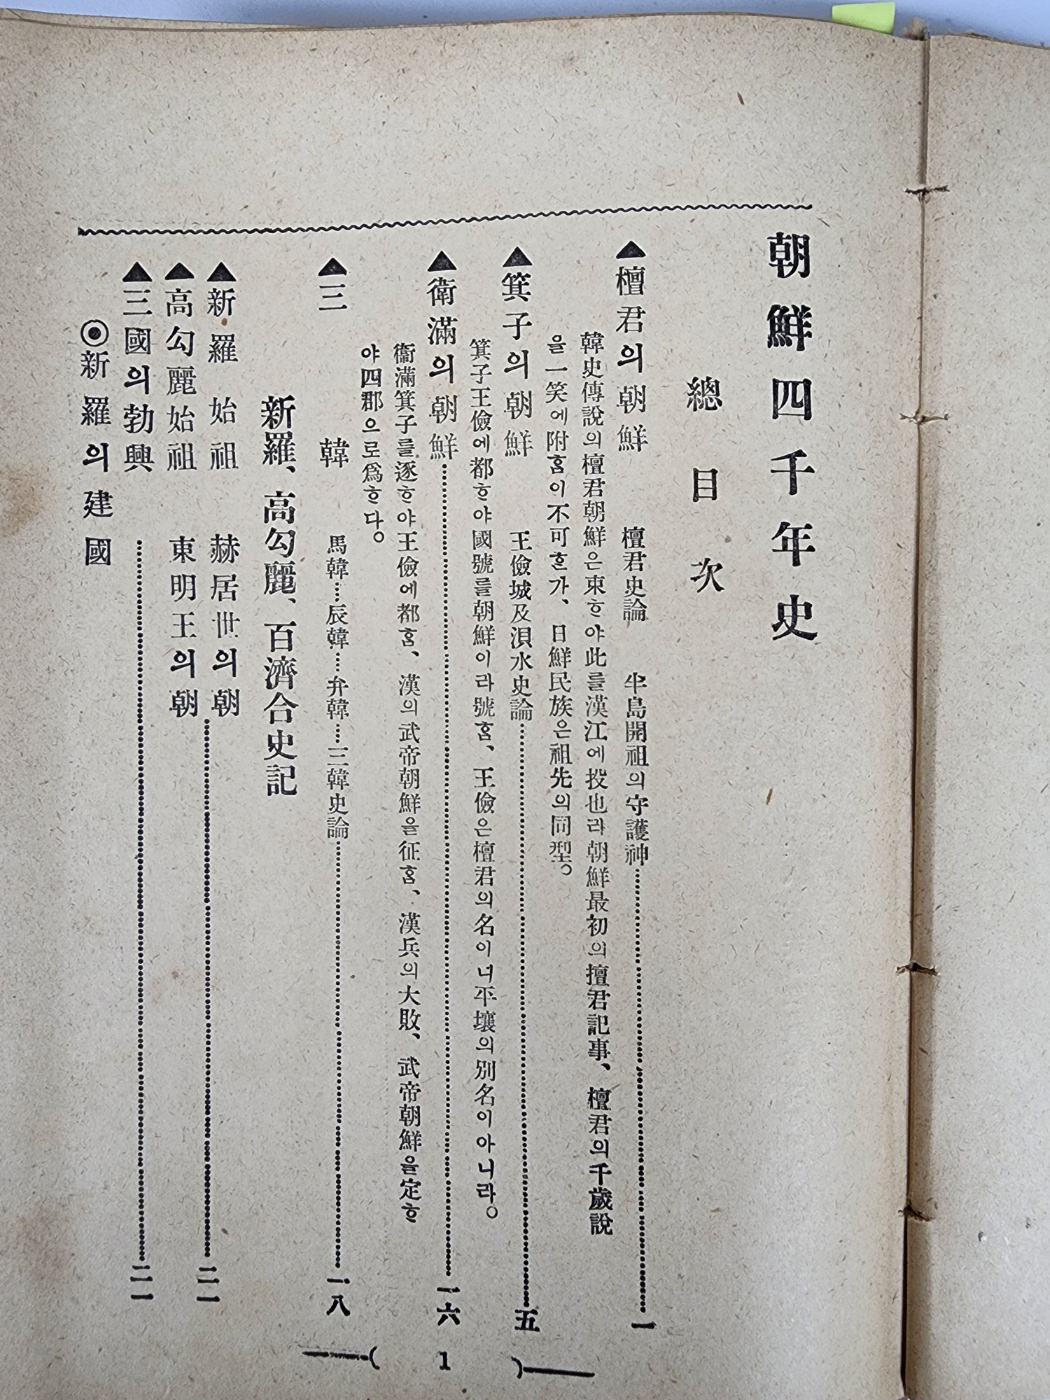 朝鮮四千年史
總目次
▲檀君의朝鮮 檀君史論 半島開祖의守護神……一
韓史傳說의檀君朝鮮은東ᄒᆞ야此를漢江에投也라朝鮮最初의擅君記事、檀君의千歲說
을一笑에附홈이不可ᄒᆞᆫ가、日鮮民族은祖先의同型。
▲箕子의朝鮮 王儉城及浿水史論……五
箕子王儉에都ᄒᆞ야國號를朝鮮이라號홈、王儉은檀君의名이너平壤의別名이아니라。
▲衛滿의朝鮮……一六
衞滿箕子를逐ᄒᆞ야王儉에都홈、漢의武帝朝鮮을征홈、漢兵의大敗、武帝朝鮮을定ᄒᆞ
야四郡으로爲ᄒᆞ다。
▲三韓 馬韓……辰韓……弁韓……三韓史論……一八
新羅、高勾麗、百濟合史記
▲新羅始祖 赫居世의朝……二一
▲高勾麗始祖 東明王의朝
▲三國의勃興……二一
◉新羅의建國
( 1 )